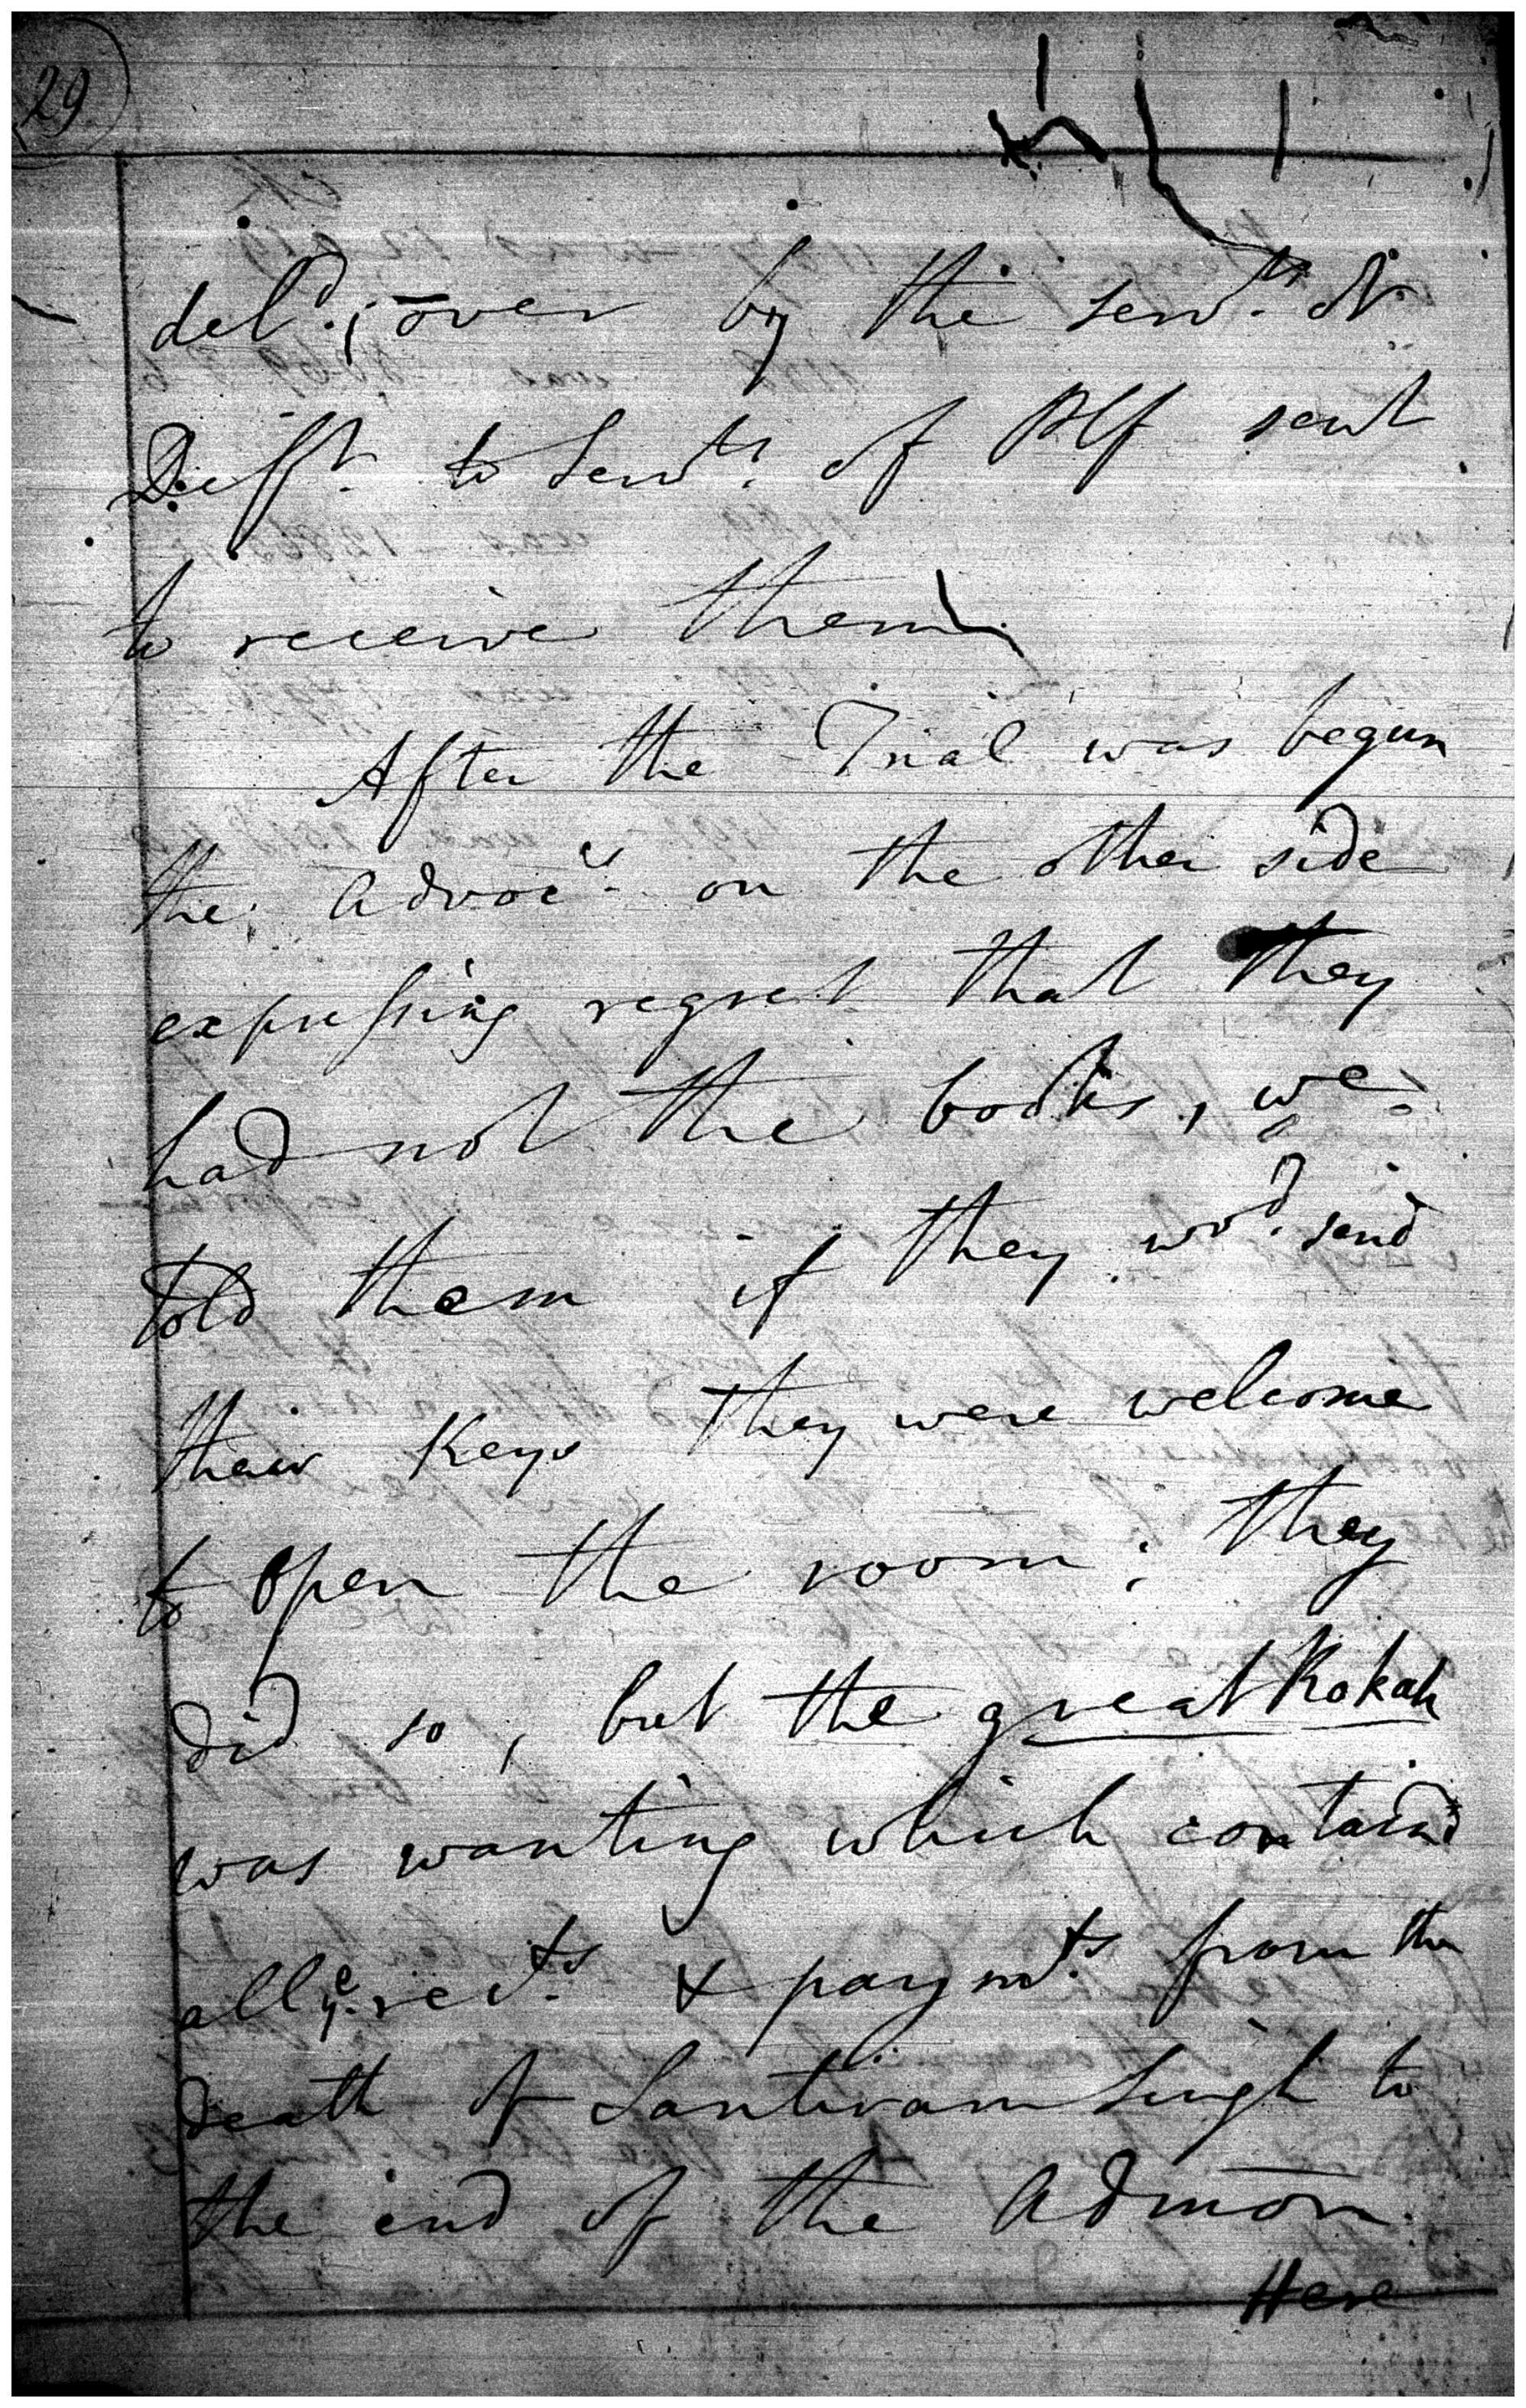 29
deld. over by the servts. of
Defft. to servts. of Plf sent
to receive them
After the Trial was begun
the advocs. on the other side
expressing regret that they
had not the books, we
told them if they wod. send
their Keys they were welcome
to open the room; they
did so, but the great Rokah
was wanting which containd
all ye. rects. & paymts. from the
death of Santiram Singh to
the end of the admon.
Here